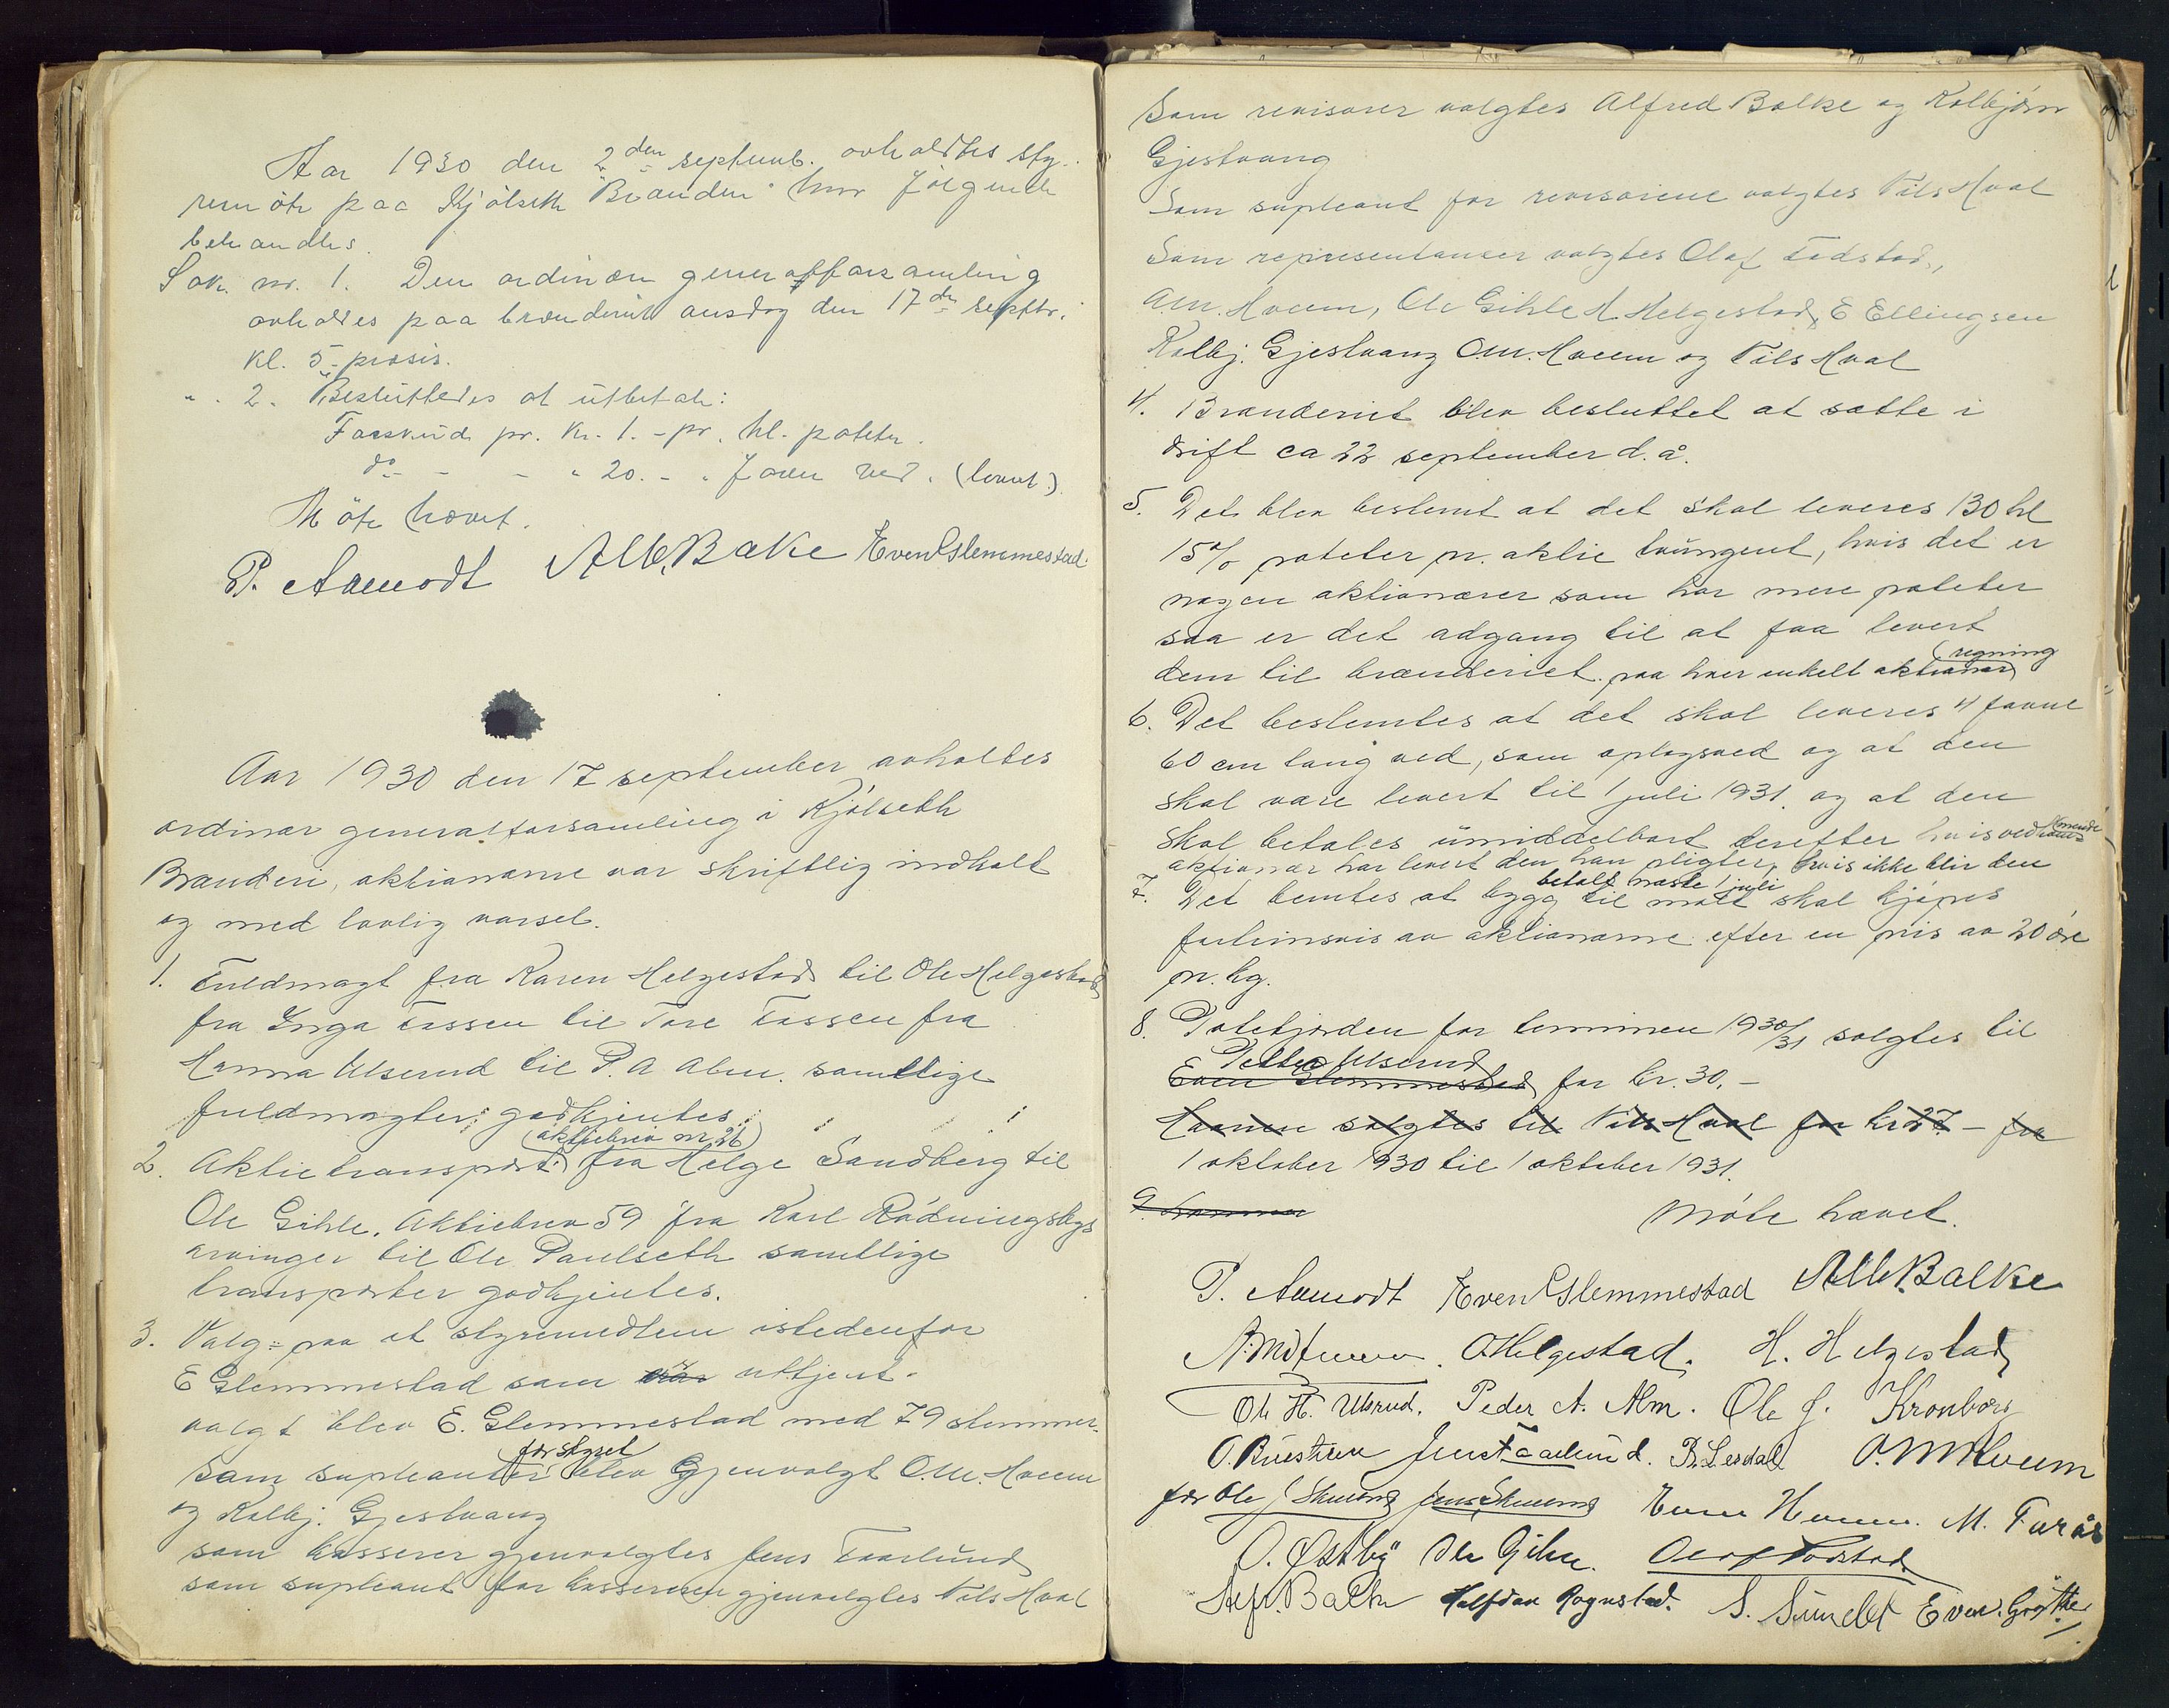 Aar 1930 den 2den septemb. avholdtes sty-
remöte paa Kjölseth Brænderi hvor følgende
behandles.
Sak nr. 1. Den ordinære generalforsamling
avholdes paa brænderiet onsdag den 17de septbr.
Kl. 5 - præsis.
" . 2. Besluttedes at utbetale:
Forskud pr. Kr. 1.- pr. hl. poteter.
do - - - " 20. - " favn ved. (levert.)
Möte hævet.
P. Aamodt Alb. Balke Even Glemmestad
Aar 1930 den 17 september avholtes
ordinær generalforsamling i Kjølseth
Brænderi, aktionærene var skriftlig indkalt
og med lovlig varsel.
1. Fuldmagt fra Karen Helgestad til Ole Helgestad
fra Inga Fossen til Tore Fossen fra
Hanna Ulsrud til P. A Alm. samtlige
fuldmagter godkjentes.
(aktiebrev nr 26)
2. Aktietransport fra Helge Sandberg til
Ole Gihle, Aktiebrev 59 fra Karl Rødningsbys
arvinger til Ole Paulseth samtlige
transporter godkjentes.
3. Valg paa et styremedlem istedenfor
E Glemmestad som var uttjent.
valgt blev E. Glemmestad med 79 stemmer.
for styret
Som supleanter blev gjenvalgt O.M. Hveem
og Kolbj. Gjestvang
som kasserer gjenvalgtes Jens Faarlund
som supleant for kassereren gjenvalgtes Nils Hval
Som revisorer valgtes Alfred Balke og Kolbjørn
Gjestvang
Som supleant for revisorene valgtes Nils Hval
Som representanter valgtes Olaf Fodstad,
O.M. Hveem, Ole Gihle H. Helgestad, E Ellingsen
Kolbj. Gjestvang O.M. Hveem og Nils Hval
4. Brænderiet blev besluttet at sætte i
drift ca 22 september d. å.
5. Det blev bestemt at det skal leveres 130 hl
15% poteter pr. aktie tvungent, hvis det er
nogen aktionærer som har mere poteter
saa er det adgang til at faa levert
dem til brænderiet. paa hver enkelt aktionær
(regning
6. Det bestemtes at det skal leveres 4 favne
60 cm lang ved, som oplagsved og at den
skal være levert til 1 juli 1931. og at den
skal betales umiddelbart derefter hvis vedkommende
aktionær har levert den han pligter, hvis ikke blir den
betalt næste 1 juli
7. Det bemtes at bygg til malt skal kjøpes
fortrinsvis av aktionærene efter en pris av 20 øre
pr. kg.
8. Potetjorden for terminen 1930/31 solgtes til
Petter Ulserud
Even Glemmestad for kr. 30. -
Havnen solgtes til Nils Hval for kr 27. - fra
1 oktober 1930 til 1 oktober 1931.
Møte hævet.
P. Aamodt Even Glemmestad Alb. Balke
O Helgestad. H. Helgestad
Ole H. Ulsrud. Peder A. Alm. Ole J. Kronborg
Jens Faarlund. P. Lesdal O. M Hveem
for Ole J Skuterud Jens Skuterud M. Furås
O. Østby Ole Gihle. Olaf Fodstad
Alfr. Balke Halfdan Rognstad. S. Sundet Even Grøtte